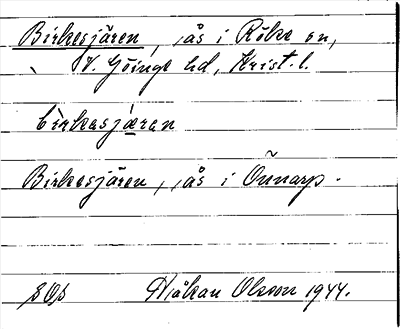 Birkesjären, ås i Röke sn,
V. Göinge hd, Krist. l.
birkasjæran
Birkesjären, ås i Önnarp.
Håkan Olsson 1944.